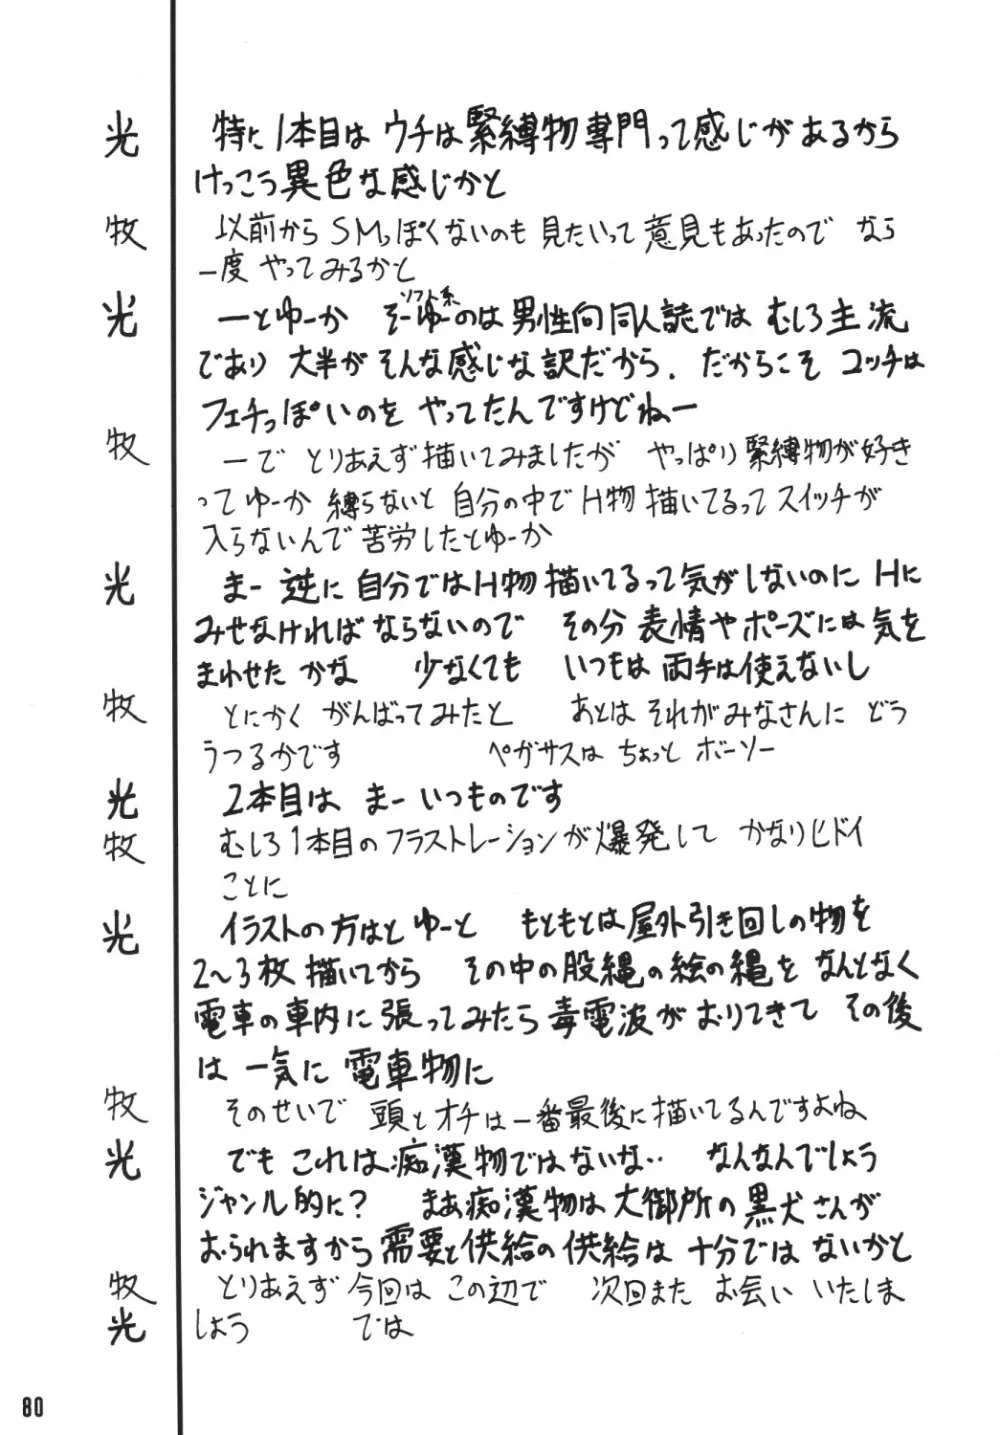 光 特に1本目は ウチは緊縛物専門って感じがあるから
けっこう異色な感じかと
牧 以前から SMっぽくないのも 見たいって 意見もあったので なら
一度 やってみるかと
光 ーとゆーか そーゆーのは男性向同人誌では むしろ主流
ソフト系
であり 大半が そんな感じな訳だから. だからこそ コッチは
フェチっぽいのを やってたんですけどねー
牧 ーで とりあえず描いてみましたが やっぱり 緊縛物が好き
ってゆーか 縛らないと 自分の中で H物 描いてるって スイッチが
入らないんで 苦労したとゆーか
光 まー 逆に 自分ではH物描いてるって気がしないのに Hに
みせなければ ならないので その分 表情や ポーズには 気を
まわせた かな 少なくても いつもは 両手は使えないし
牧 とにかく がんばってみたと あとは それがみなさんに どう
うつるかです ペガサスは ちょっと ボーソー
光 2本目は まー いつものです
牧 むしろ 1本目の フラストレーションが 爆発して かなり ヒドイ
ことに
光 イラストの 方はと ゆーと もともとは 屋外引き回しの 物を
2〜3枚 描いてから その中の 股縄の 絵の 縄を なんとなく
電車の 車内に 張ってみたら 毒電波が おりてきて その後
は 一気に 電車物に
牧 そのせいで 頭とオチは 一番最後に 描いてるんですよね
光 でも これは 痴漢物ではないな‥ なんなんでしょう
ジャンル的に? まあ痴漢物は 大御所の 黒犬さんが
おられますから 需要と供給の 供給は 十分では ないかと
牧 とりあえず 今回は この辺で 次回また お会い いたしま
光 しょう では
80